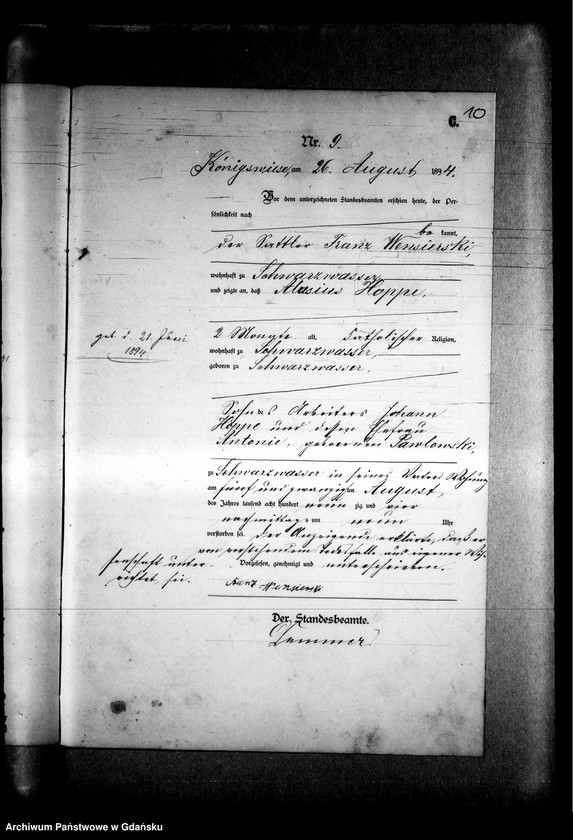 10
C.
Nr. 9.
Königswiese, am 26. August 1894.
Vor dem unterzeichneten Standesbeamten erschien heute, der Per-
sönlichkeit nach
be kannt,
der Sattler Franz Wensierski,
wohnhaft zu Schwarzwasser
und zeigte an, daß Aloisius Hoppe,
geb. d. 21. Juni
1894.
2 Monate alt, katholischer Religion,
wohnhaft zu Schwarzwasser,
geboren zu Schwarzwasser,
Sohn des Arbeiters Johann
Hoppe und dessen Ehefrau
Antonie, geborenen Pawlowski,
zu Schwarzwasser in seines Vaters Wohnung
am fünf und zwanzigsten August
des Jahres tausend acht hundert neun zig und vier
nachmittags um neun Uhr
verstorben sei. Der Anzeigende erklärte, daß er
von vorstehendem Todesfalle aus eigener Wis-
senschaft unter-
richtet sei.
Vorgelesen, genehmigt und unterschrieben.
Franz Wensierski
Der Standesbeamte.
Archiwum Państwowe w Gdańsku